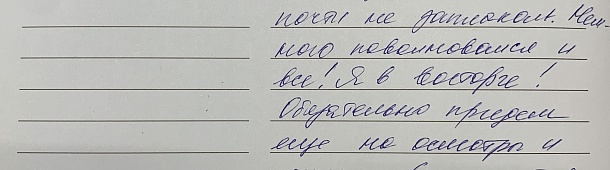 почти не заплакал. Нем-
ного поволновался и
все! Я в восторге!
Обязательно придем
еще на осмотры и